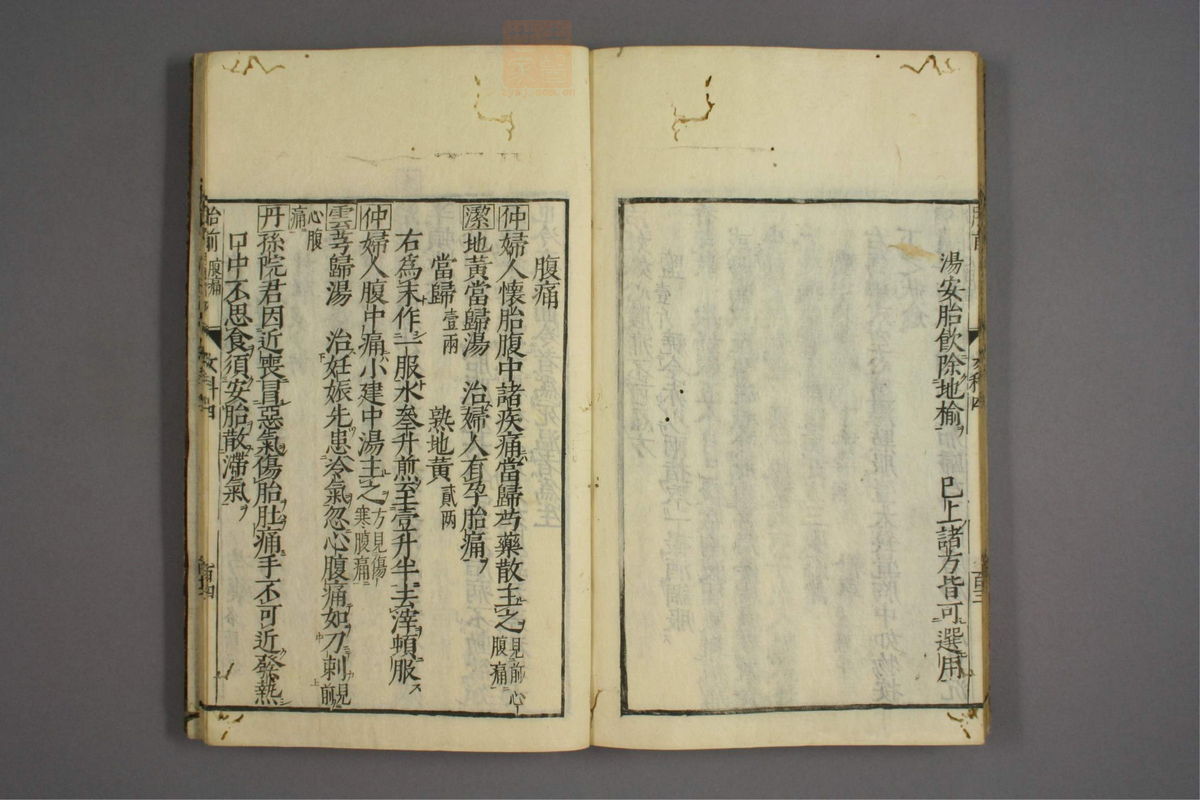 湯安胎飲除地榆 已上諸方皆可選用
腹痛
仲婦人懷胎腹中諸疾痛當歸芍藥散主之見前心腹痛
潔地黃當歸湯 治婦人有孕胎痛
當歸壹兩 熟地黃貳兩
右為末作一服水叄升煎至壹升半去滓頓服
仲婦人腹中痛小建中湯主之方見傷寒腹痛
雲芎歸湯 治妊娠先患冷氣忽心腹痛如刀刺見前
心腹痛
丹孫院君因近喪冒惡氣傷胎肚痛手不可近發熱
口中不思食須安胎散滯氣
胎前 腹痛 女科四 百四